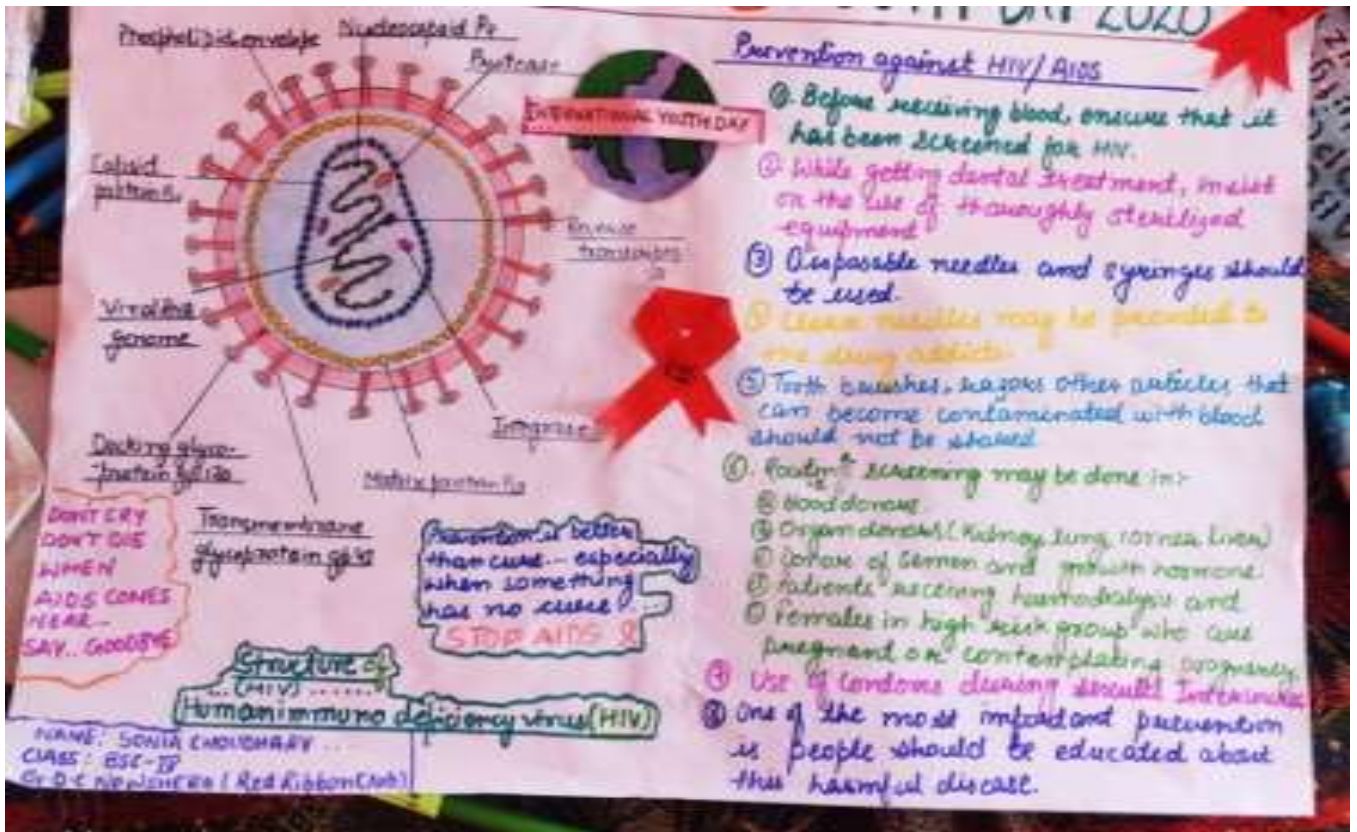 2020
Phospholipid envelope
Nucleocapsid P₇
Protease
Capsid
protein P₂₄
Reverse
Viral RNA
genome
Integrase
Docking glyco-
protein gp120
Matrix protein
Transmembrane
glycoprotein gp41
INTERNATIONAL YOUTH DAY
DON'T CRY
DON'T DIE
WHEN
AIDS COMES
NEAR...
SAY.. GOODBYE
Prevention is better
than cure... especially
when something
has no cure
STOP AIDS
Structure of
(HIV)
Human immuno deficiency virus (HIV)
NAME: SONIA CHOUDHARY
CLASS: BSC-IV
G.D.C NOWSHERA (Red Ribbon Club)
Prevention against HIV/AIDS
①. Before receiving blood, ensure that it
has been screened for HIV.
② While getting dental treatment, insist
on the use of thoroughly sterilized
equipment
③ Disposable needles and syringes should
be used.
④ Clean needles may be provided to
drug addicts.
⑤ Tooth brushes, razors other articles that
can become contaminated with blood
should not be shared
⑥. Routine screening may be done in:-
Blood donors
Organ donors (Kidney lung cornea liver)
of semen and growth hormone
Patients haemodialysis and
Females in high risk group who are
pregnant or contemplating pregnancy
⑦ Use of condoms during sexual
⑧ One of the most important prevention
is people should be educated about
this harmful disease.